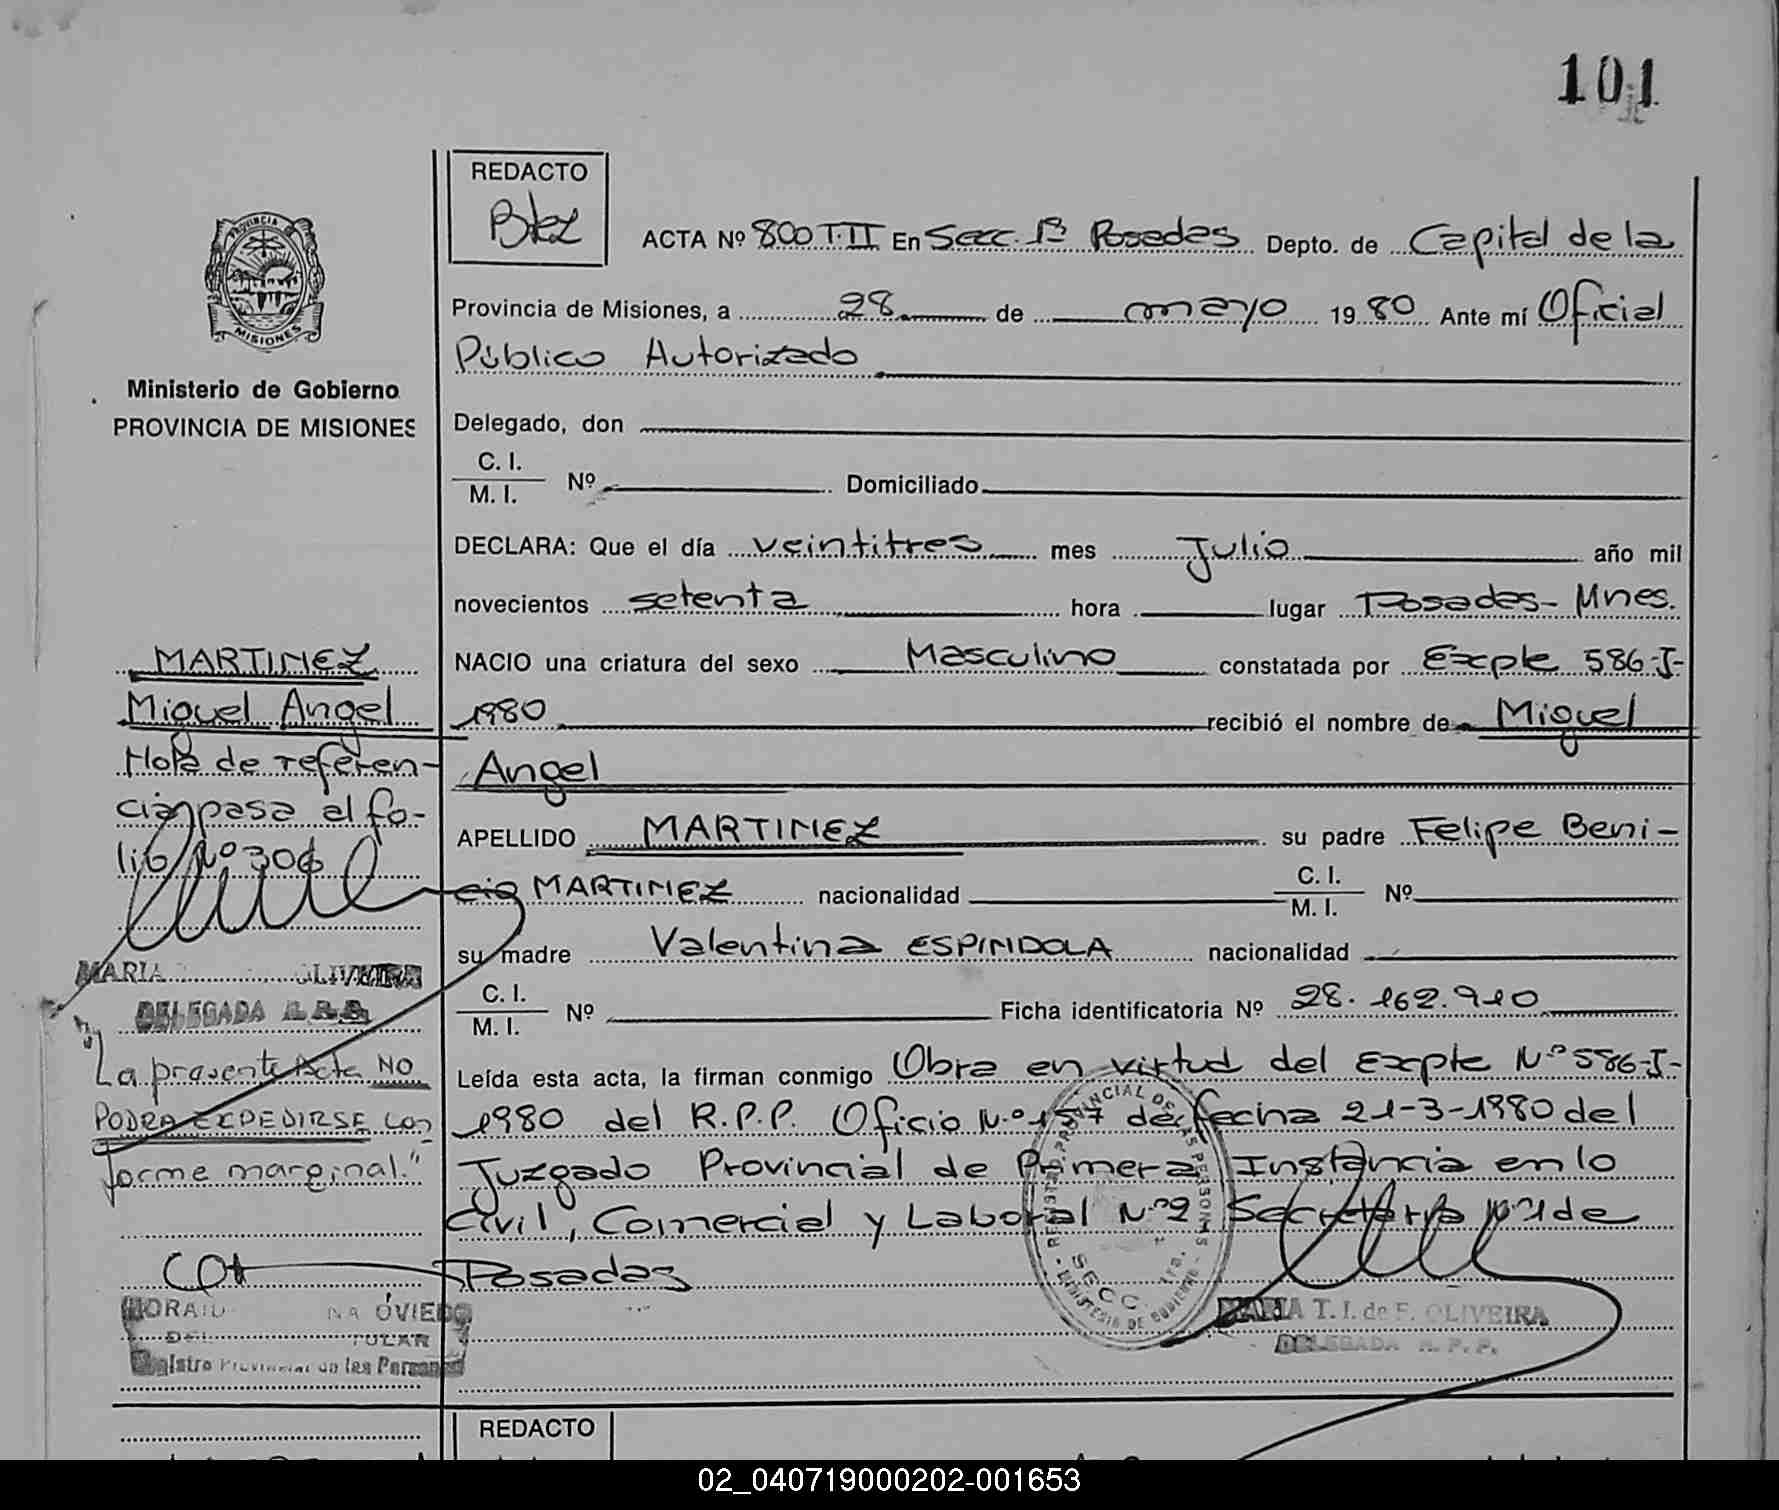 101
REDACTO
ACTA Nº 800 T·II En Secc. 1ª Posadas Depto. de Capital de la
Provincia de Misiones, a 28 de mayo 1980 Ante mí Oficial
Público Autorizado
Delegado, don
C. I.
M. I.
Nº Domiciliado
DECLARA: Que el día veintitres mes Julio año mil
novecientos setenta hora lugar Posadas-Mnes.
NACIO una criatura del sexo Masculino constatada por Expte 586-I-
1980 recibió el nombre de Miguel
Angel
APELLIDO MARTINEZ su padre Felipe Beni-
cio MARTINEZ nacionalidad C. I. M. I. Nº
su madre Valentina ESPINDOLA nacionalidad
C. I.
M. I.
Nº Ficha identificatoria Nº 28.162.910
Leída esta acta, la firman conmigo Obra en virtud del Expte Nº 586-I-
1980 del R.P.P. Oficio N.º 157 de fecha 21-3-1980 del
Juzgado Provincial de Primera Instancia en lo
Civil, Comercial y Laboral N.º 2 Secretaria Nº 1 de
Posadas
MARIA T. I. de F. OLIVEIRA
DELEGADA R. P. P.
PROVINCIA DE
MISIONES
Ministerio de Gobierno
PROVINCIA DE MISIONES
MARTINEZ
Miguel Angel
Nota de referen-
cia pasa al fo-
lio Nº 306
MARIA OLIVEIRA
DELEGADA R.P.P.
"La presente Acta NO
PODRA EXPEDIRSE con
forme marginal."
OVIEDO
TULAR
Registro Provincial de las Personas
REDACTO
02_040719000202-001653